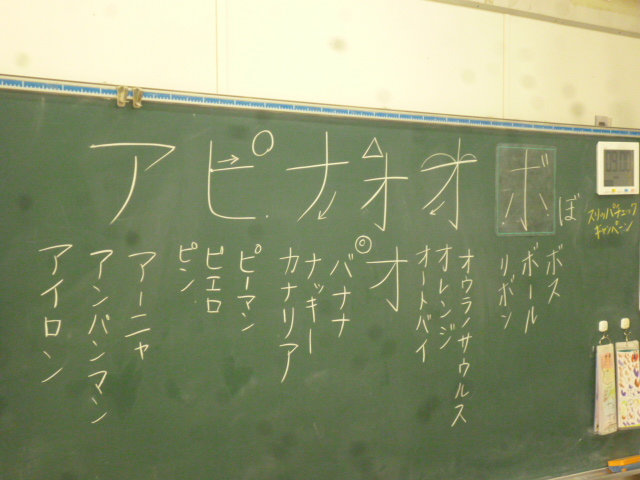 スリッパチェック
キャンペーン
ボ
ぼ
ボス
ボール
リボン
オ
オウラノサウルス
オレンジ
オートバイ
オ
オ
ナ
バナナ
ナッキー
カナリア
ピ
ピーマン
ピエロ
ピン
ア
アーニャ
アンパンマン
アイロン